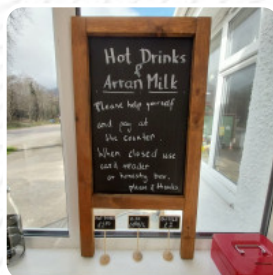 Hot Drinks
&
Arran Milk
Please help yourself
and pay at
the counter.
When closed use
card reader
or honesty box.
please & thanks.